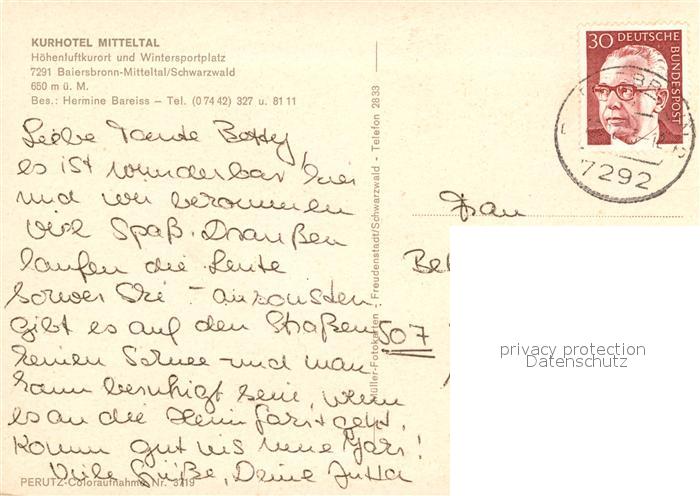 KURHOTEL MITTELTAL
Höhenluftkurort und Wintersportplatz
7291 Baiersbronn-Mitteltal/Schwarzwald
650 m ü. M.
Bes.: Hermine Bareiss – Tel. (0 74 42) 327 u. 81 11
Liebe Tante Betty,
es ist wunderbar hier
und wir bekommen
viel Spaß. Draußen
laufen die Leute
Ski – ansonsten
gibt es auf den Straßen
keinen Schnee und man
kann beruhigt sein, wenn
es an die Heimfahrt geht.
Komm gut ins neue Jahr!
Viele Grüße, Deine Jutta
PERUTZ-Coloraufnahme Nr. 3719
Müller-Fotokarten – Freudenstadt/Schwarzwald – Telefon 2833
30 DEUTSCHE BUNDESPOST
7292
Frau
Bet
507
privacy protection
Datenschutz